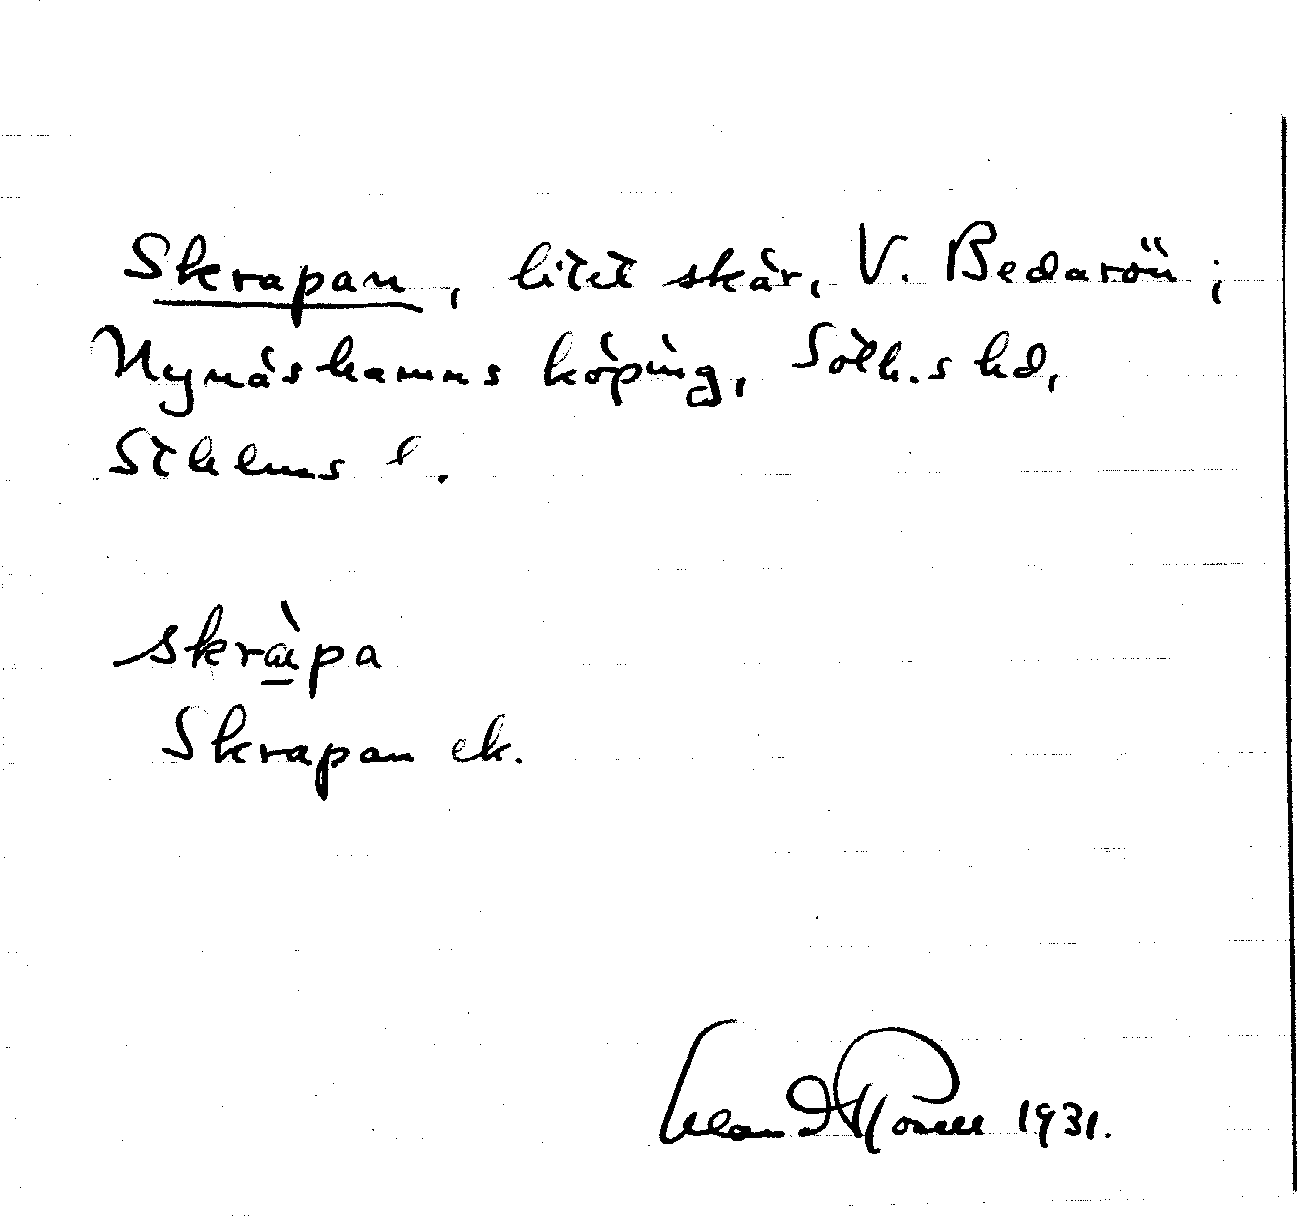 Skrapan, litet skär, V. Bedarön;
Nynäshamns köping, Soth.s hd,
Sthlms l.
skràpa
Skrapan ek.
1931.